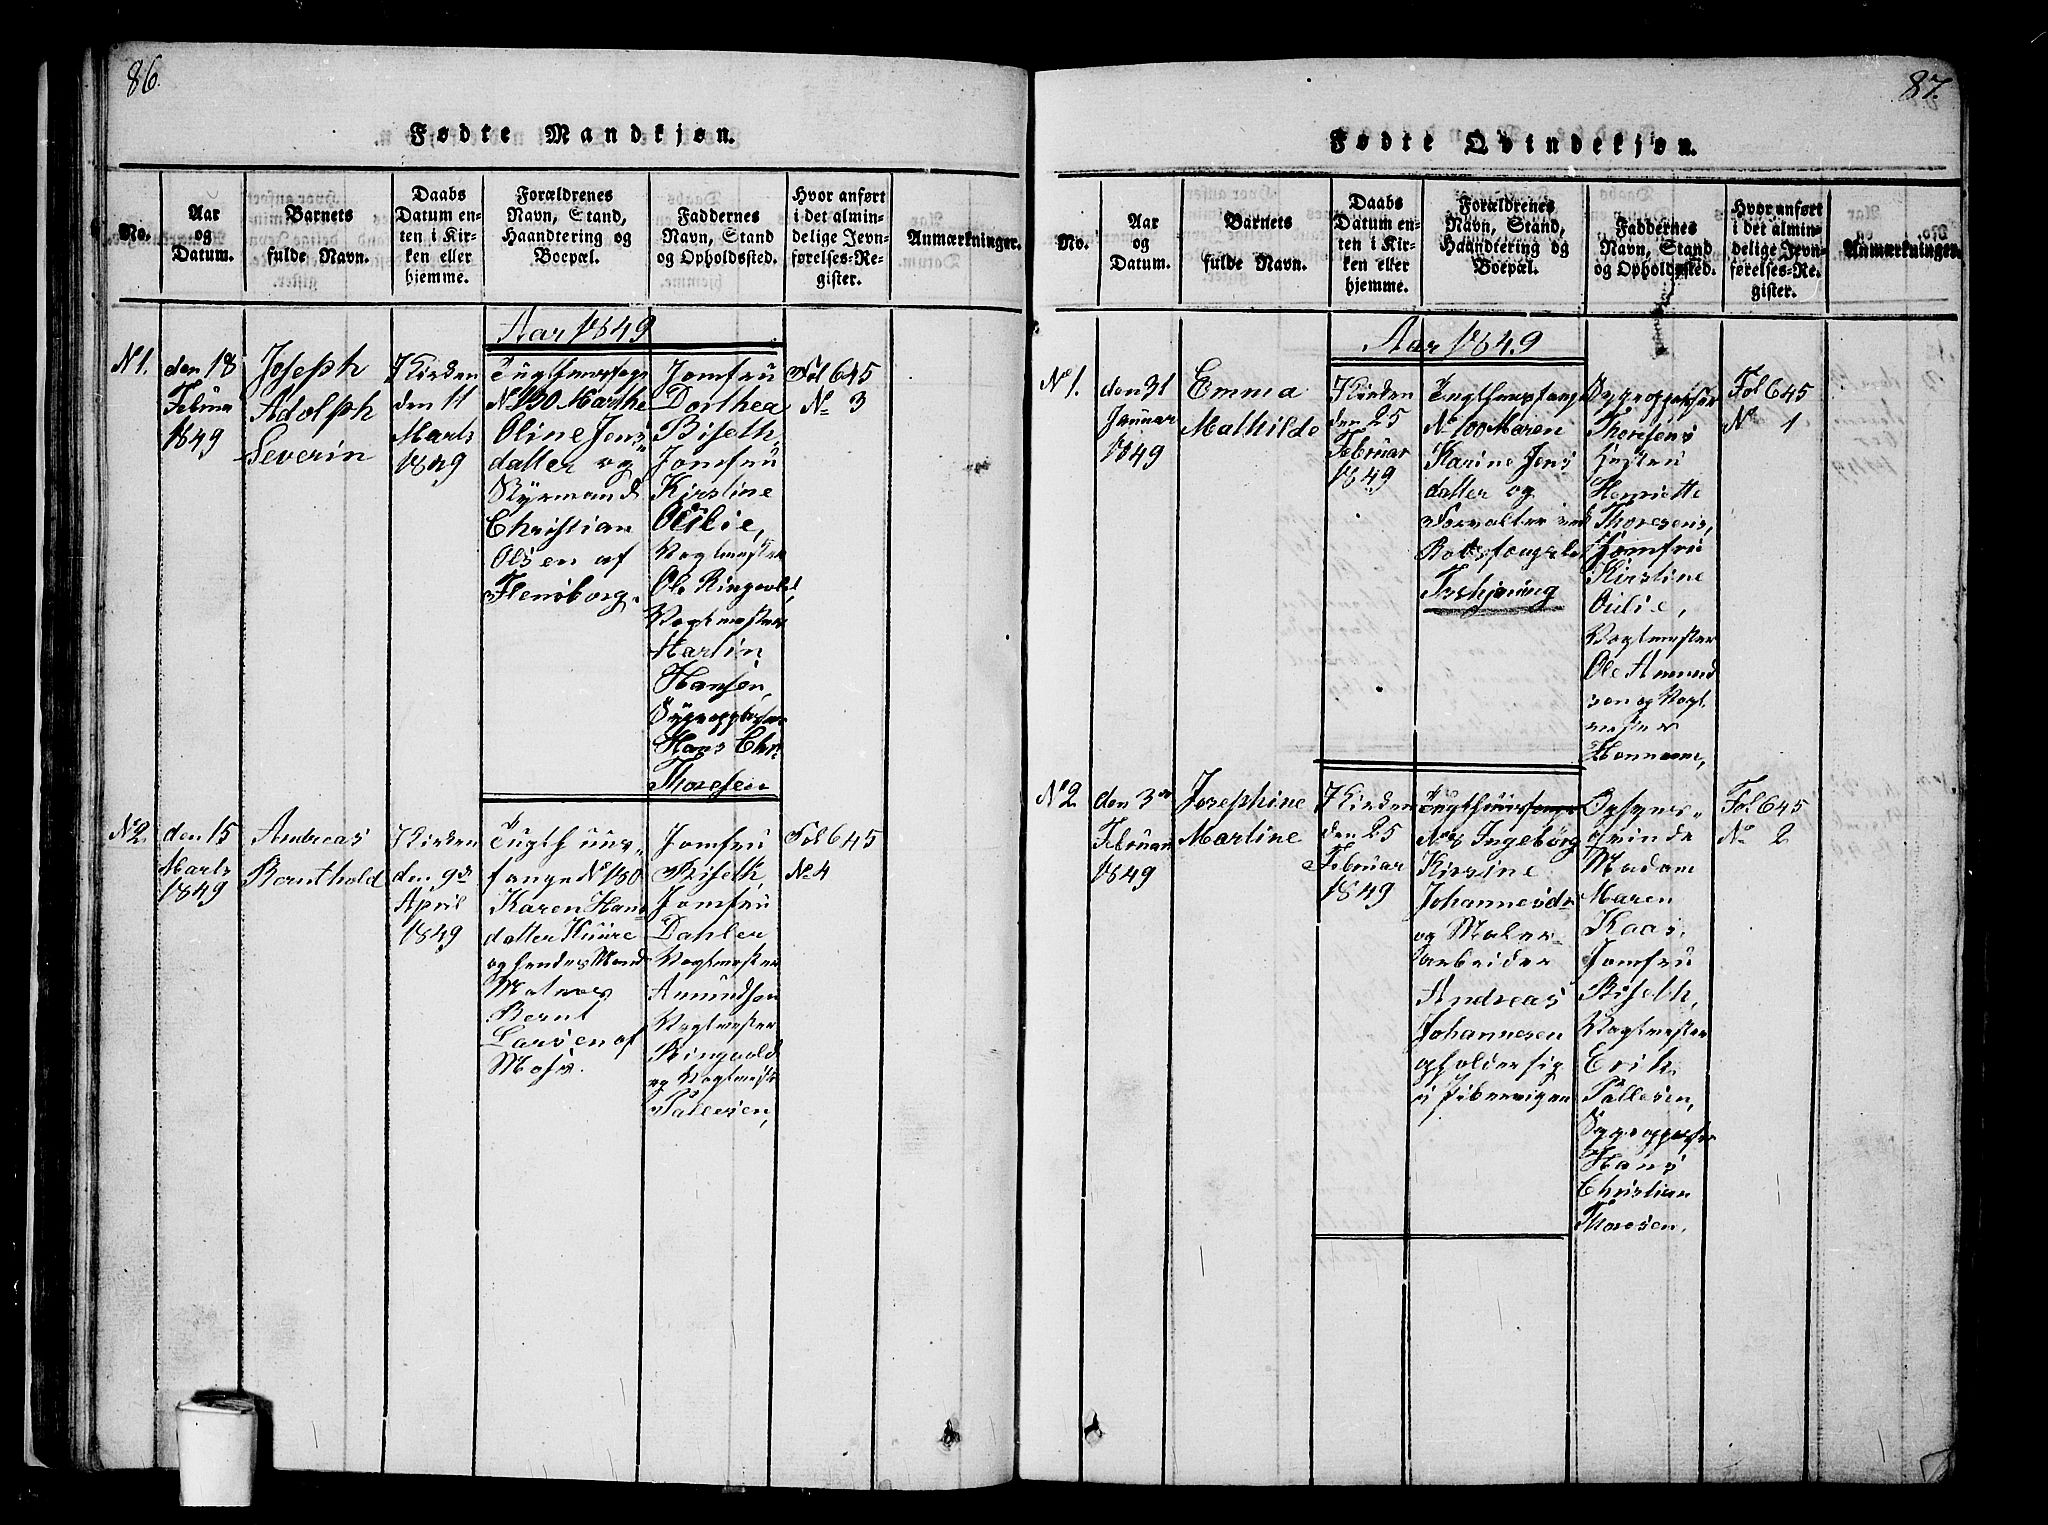 86.
Fødte Mandkjøn.
No.
Aar
og
Datum.
Barnets
fulde Navn.
Daabs
Datum en-
ten i Kir-
ken eller
hjemme.
Forældrenes
Navn, Stand,
Haandtering og
Boepæl.
Faddernes
Navn, Stand
og Opholdssted.
Hvor anført
i det almin-
delige Jevn-
førelses-Re-
gister.
Anmærkninger.
Aar 1849
N 1.
den 18
Februar
1849
Joseph
Adolph
Severin
I Kirken
den 11
Marts
1849
Tugthuusfange
N 130 Marthe
Oline Jens
datter og
Styrmand
Christian
Olsen af
Flensborg.
Jomfru
Dorthea
Biseth,
Jomfru
Kirstine
Oulie,
Vogtmester
Ole Ringvold,
Vogtmester
Martin
Hansen,
Sygeopp
Hans Chr.
Thoresen
Fol 645
No 3
No 2
den 15
Marts
1849
Andreas
Bernthold
I Kirken
den 9de
April
1849
Tugthuus-
fange N 180
Karen Hans
datter
og hendes Mand
Matros
Bernt
Larsen af
Moss.
Jomfru
Biseth,
Jomfru
Dahler
Vogtmester
Amundsen
Vogtmester
Ringvold
og Vogtmester
Pallesen,
Fol 645
No 4
87.
Fødte Qvindekjøn.
No.
Aar
og
Datum.
Barnets
fulde Navn.
Daabs
Datum en-
ten i Kir-
ken eller
hjemme.
Forældrenes
Navn, Stand,
Haandtering og
Boepæl.
Faddernes
Navn, Stand
og Opholdssted.
Hvor anført
i det almin-
delige Jevn-
førelses-Re-
gister.
Anmærkninger.
Aar 1849
No 1.
den 31
Januar
1849
Emma
Mathilde
I Kirken
den 25
Februar
1849
Tugthuusfange
No 100 Maren
Karine Jens
datter og
Forvalter ved
Botsfængslet
Thoresens
Hustru
Henriette
Thoresens,
Jomfru
Kirstine
Oulie,
Vogtmester
Ole Amund
sen og Vogt
mester
Fol 645
No 1
No 2
den 3de
Februar
1849
Josephine
Martine
I Kirken
den 25
Februar
1849
Tugthuusfange
Ingeborg
Kirstine
Johannesdr
og Maler-
arbeider
Andreas
Johannesen
opholder sig
i Pibervigen
Opsyns-
qvinde
Madam
Maren
Kaas,
Jomfru
Biseth,
Vogtmester
Erik
Pallesen,
Hans
Christian
Thoresen.
Fol 645
No 2